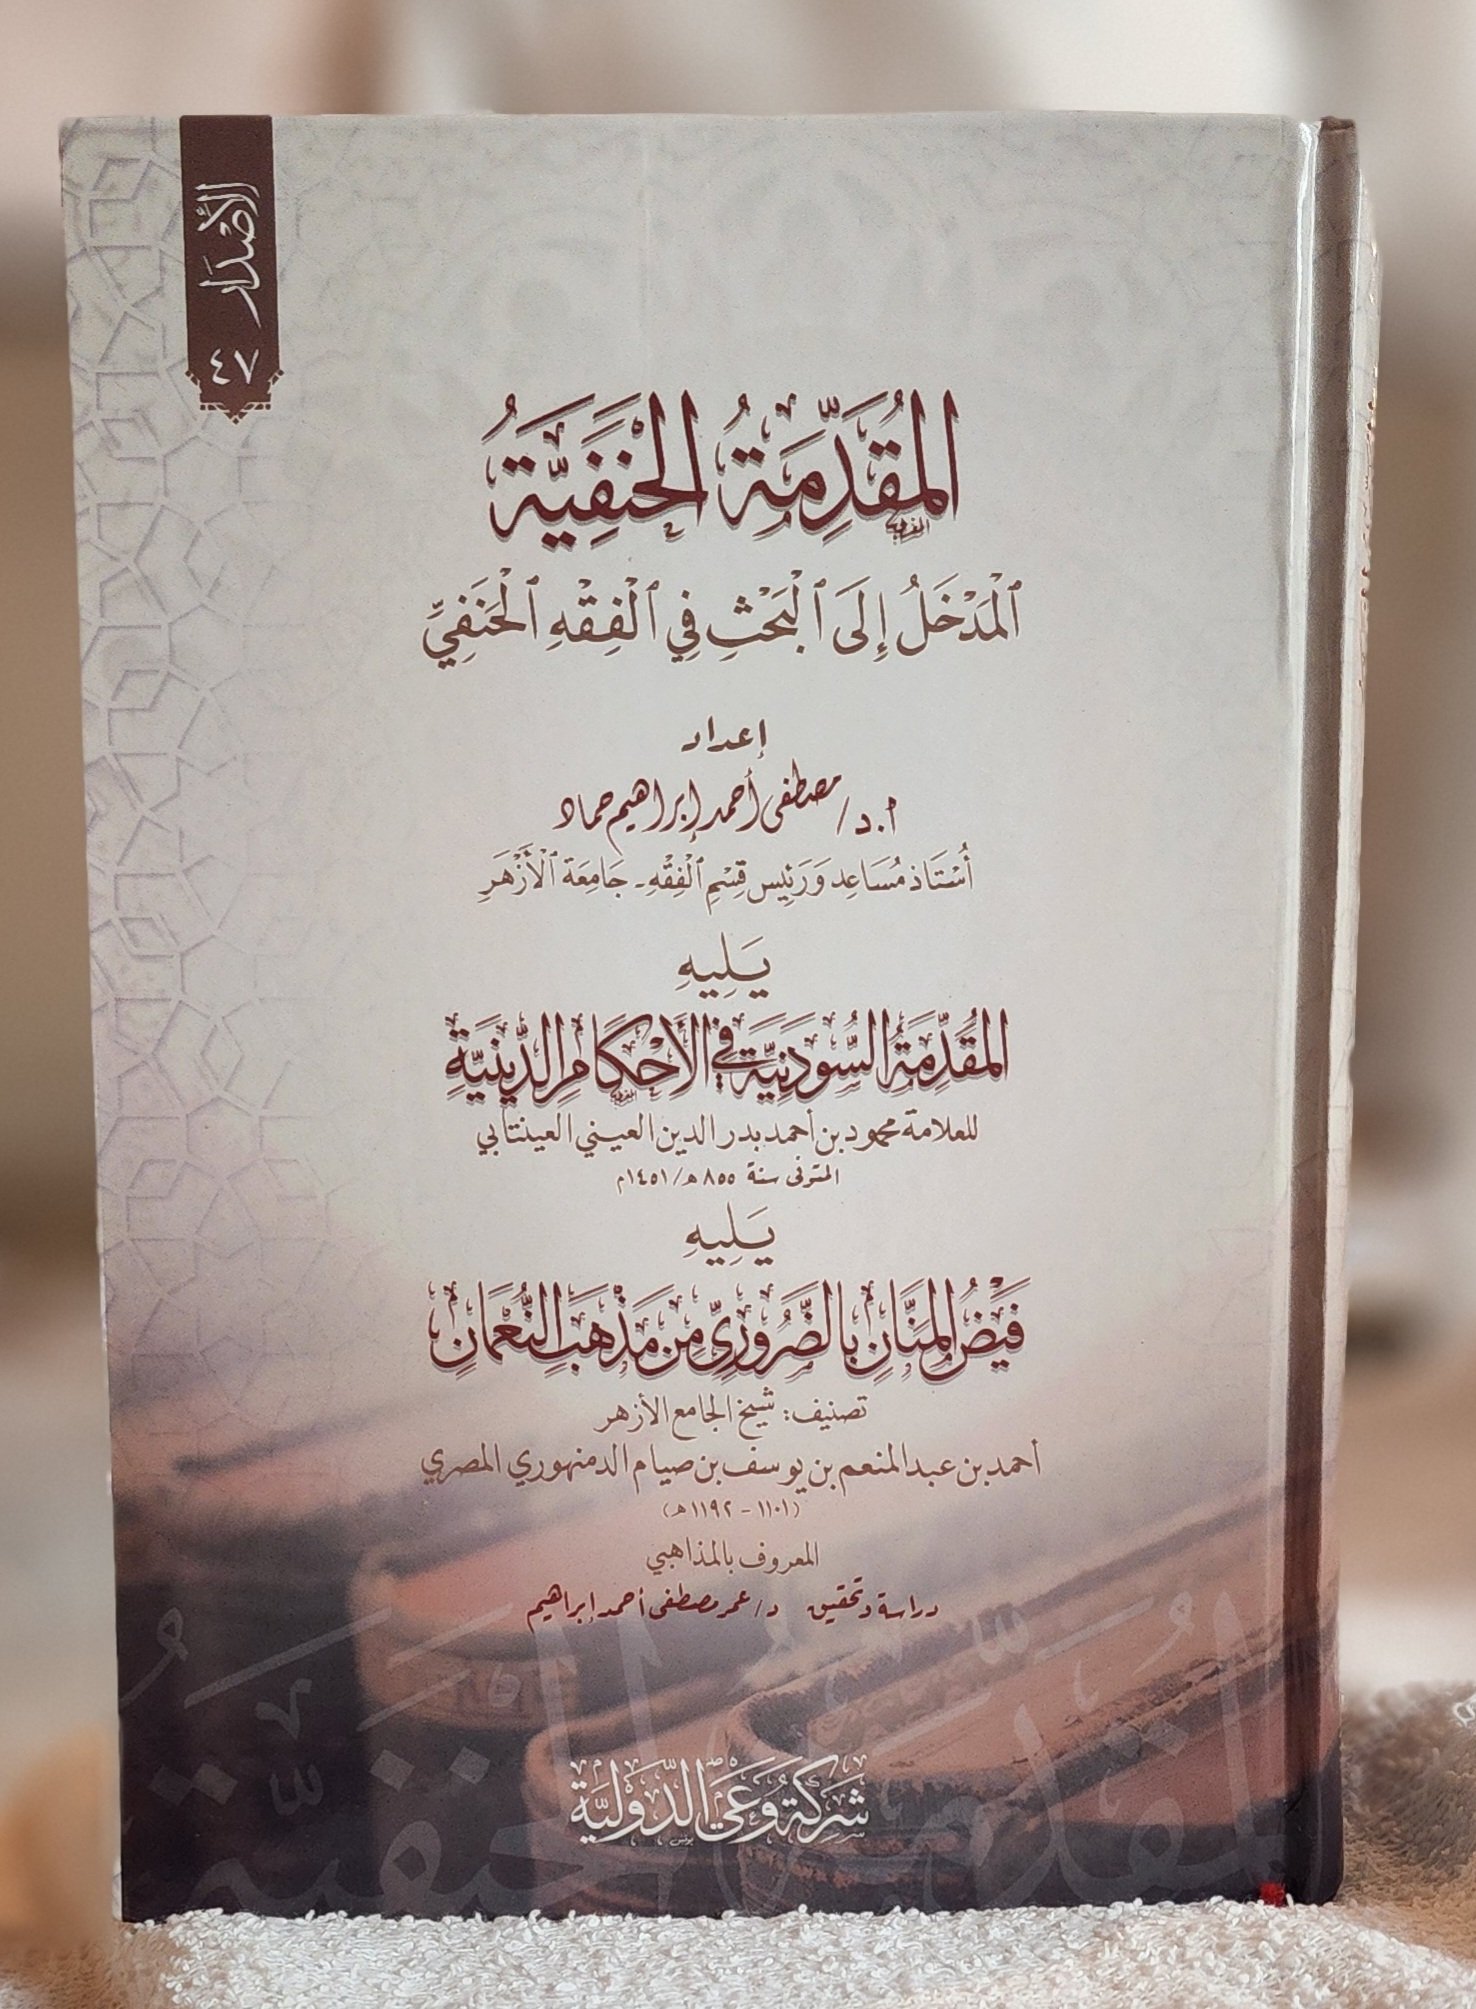 الأصدار ٤٧
المُقَدِّمَةُ الحَنَفِيَّةُ
ٱلْمَدْخَلُ إِلَى ٱلْبَحْثِ فِي ٱلْفِقْهِ ٱلْحَنَفِيِّ
إعداد
أ.د/ مصطفى أحمد إبراهيم حماد
أُسْتَاذ مُسَاعِد وَرَئِيس قِسْمِ ٱلْفِقْهِ - جَامِعَة ٱلْأَزْهَرِ
يَلِيهِ
المُقَدِّمَةُ السُّودَنِيَّة فِي الأَحْكَامِ الدِّينِيَّةِ
للعلامة محمود بن أحمد بدر الدين العيني العينتابي
المتوفى سنة ٨٥٥ هـ/١٤٥١م
يَلِيهِ
فَيْضُ المَنَّانِ بِالضَّرُورِيِّ مِنْ مَذْهَبِ النُّعْمَانِ
تصنيف: شيخ الجامع الأزهر
أحمد بن عبد المنعم بن يوسف بن صيام الدمنهوري المصري
(١١٠١ - ١١٩٢هـ)
المعروف بالمذاهبي
دراسة وتحقيق د/ عمر مصطفى أحمد إبراهيم
شَرِكَة وَعْي الدَّوْلِيَّة